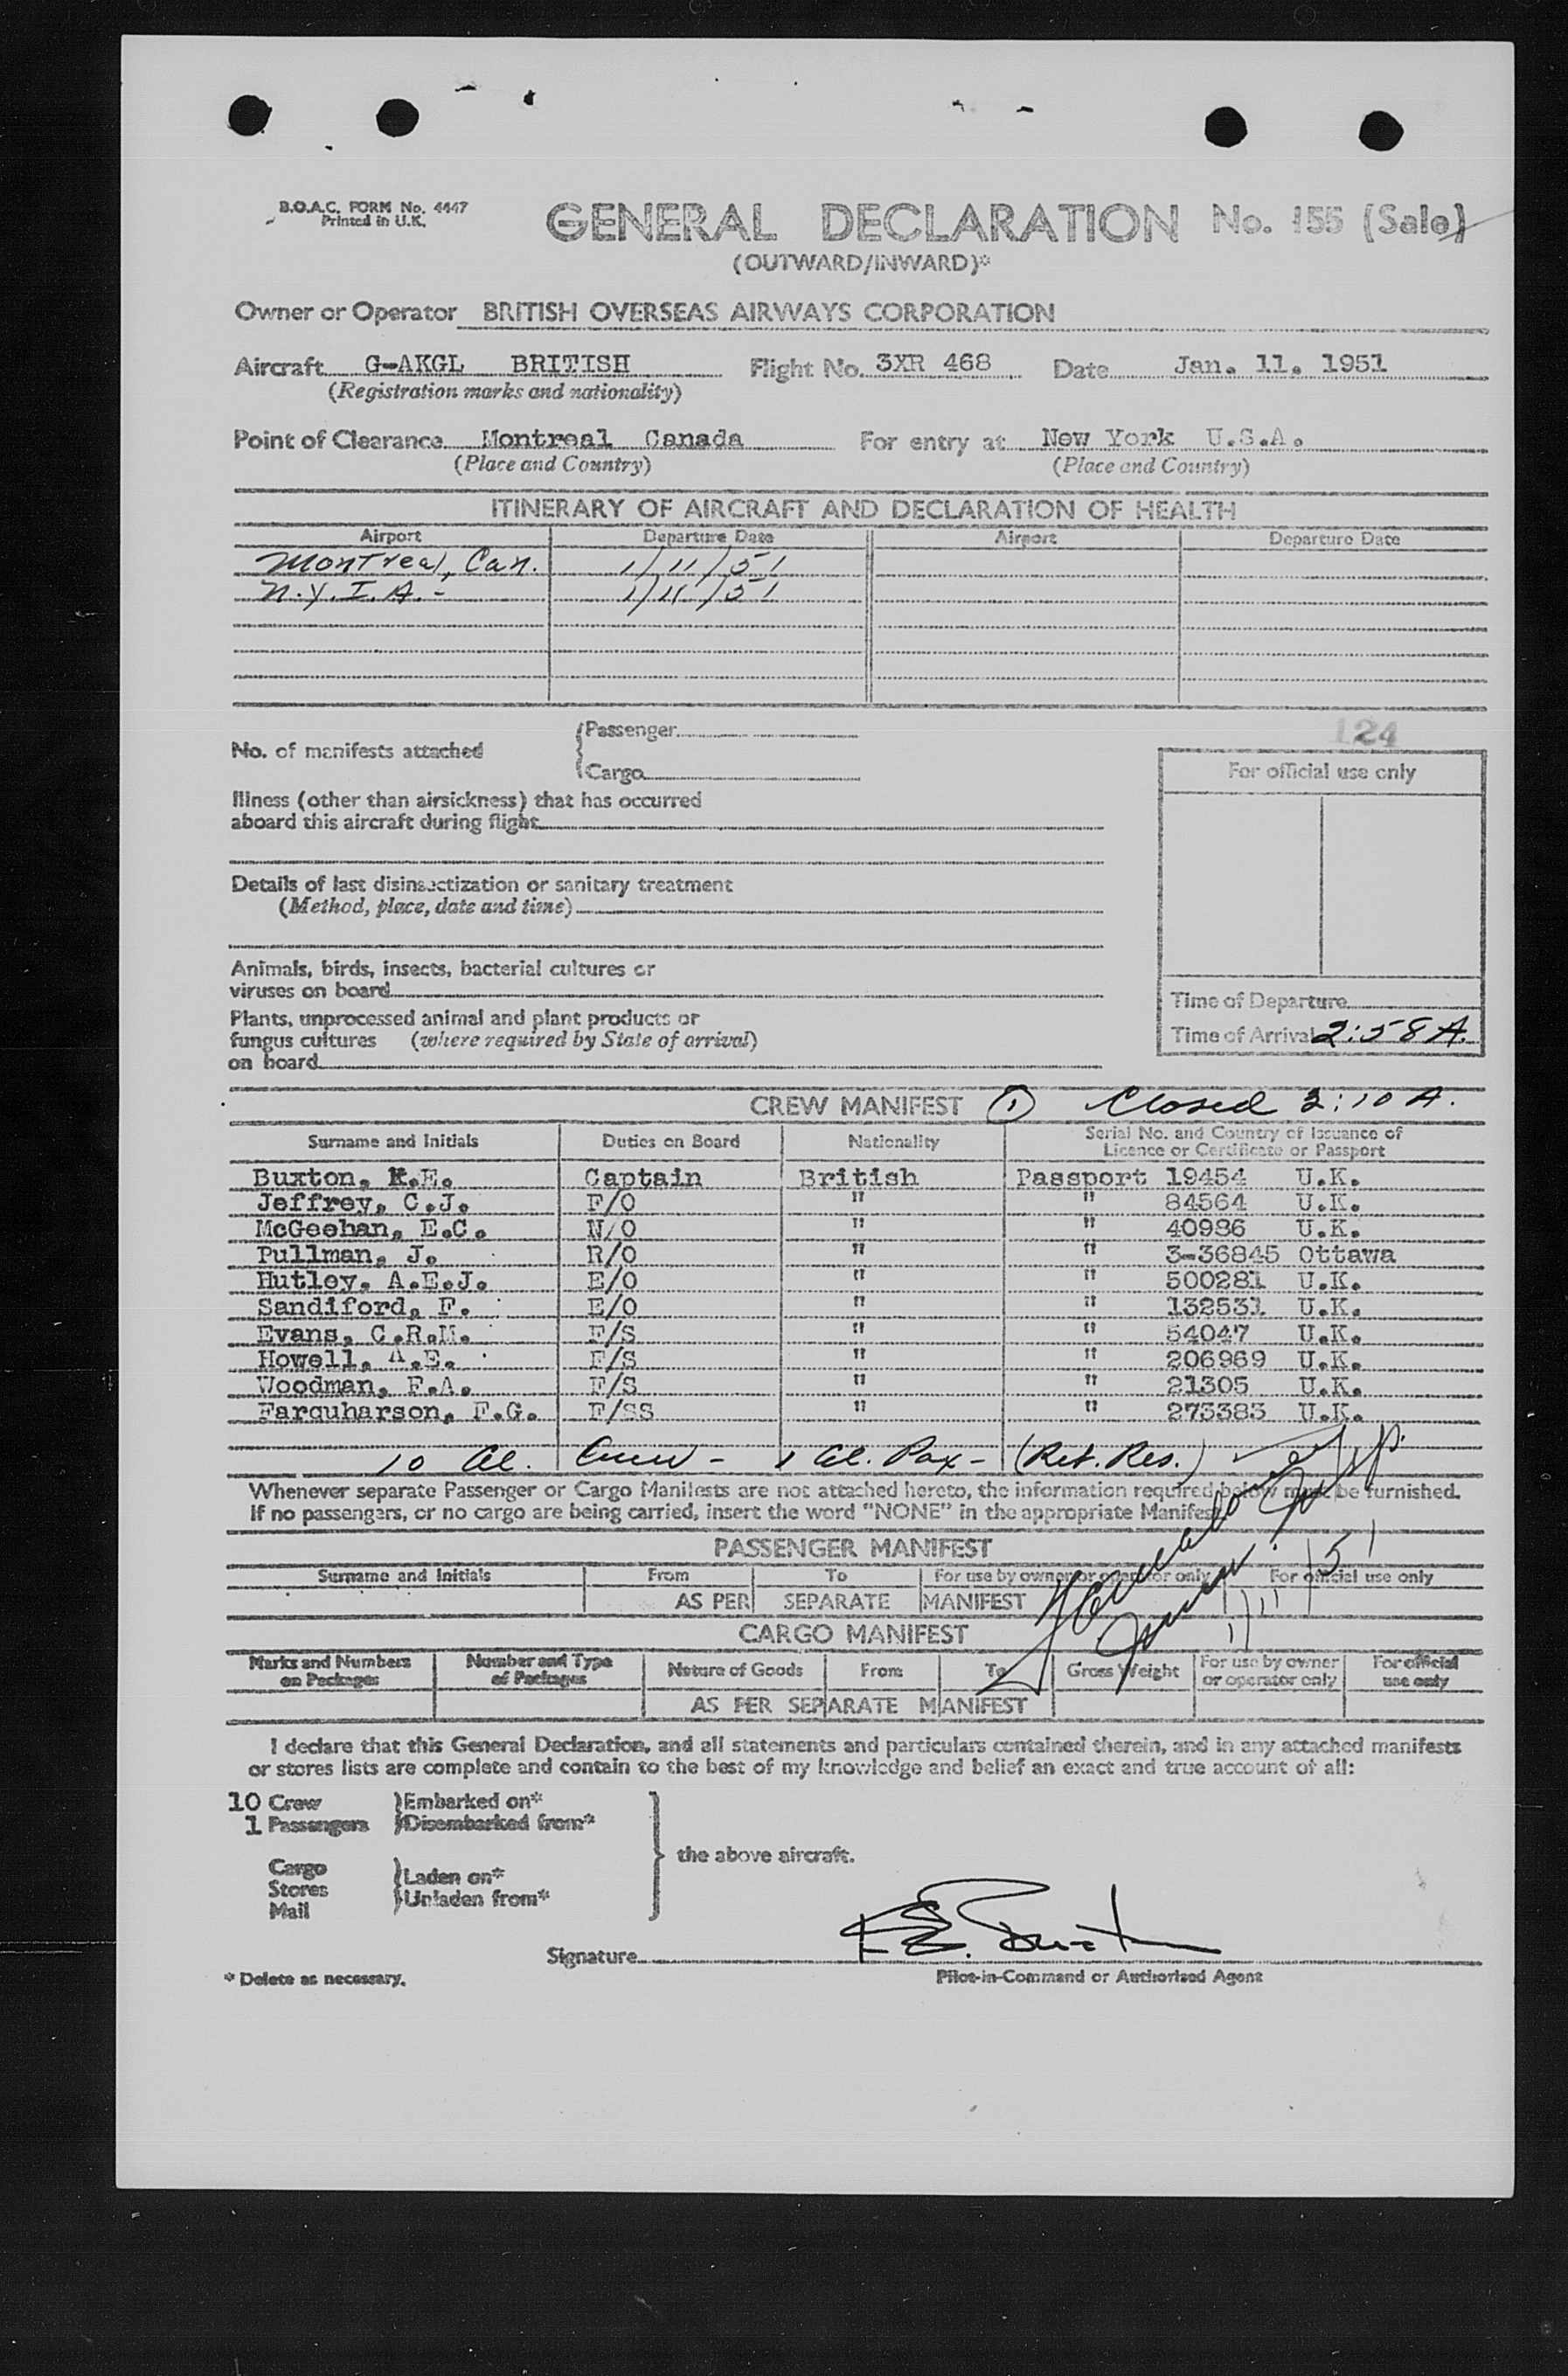 B.O.A.C. FORM No. 4447
Printed in U.K.
GENERAL DECLARATION No. 155 (Sale)
(OUTWARD/INWARD)*
Owner or Operator BRITISH OVERSEAS AIRWAYS CORPORATION
Aircraft G-AKGL BRITISH Flight No. 3XR 468 Date Jan. 11. 1951
(Registration marks and nationality)
Point of Clearance Montreal Canada For entry at New York U.S.A.
(Place and Country) (Place and Country)
ITINERARY OF AIRCRAFT AND DECLARATION OF HEALTH
Airport Departure Date Airport Departure Date
Montreal, Can. 1/11/51
N.Y.I.A.- 1/11/51
124
No. of manifests attached
Passenger
Cargo
For official use only
Illness (other than airsickness) that has occurred
aboard this aircraft during flight
Details of last disinsectization or sanitary treatment
(Method, place, date and time)
Animals, birds, insects, bacterial cultures or
viruses on board
Time of Departure
Plants, unprocessed animal and plant products or
fungus cultures (where required by State of arrival)
on board
Time of Arrival 2:58 A.
CREW MANIFEST (1) Closed 3:10 A.
Surname and Initials Duties on Board Nationality Serial No. and Country of Issuance of
Licence or Certificate or Passport
Buxton, K.E. Captain British Passport 19454 U.K.
Jeffrey, C.J. F/O " " 84564 U.K.
McGeehan, E.C. N/O " " 40986 U.K.
Pullman, J. R/O " " 3-36845 Ottawa
Hutley, A.E.J. E/O " " 500281 U.K.
Sandiford, F. E/O " " 132531 U.K.
Evans, C.R.M. F/S " " 54047 U.K.
Howell, A.E. F/S " " 206969 U.K.
Woodman, F.A. F/S " " 21305 U.K.
Farquharson, F.G. F/SS " " 273383 U.K.
10 Al. Crew - 1 Al. Pax - (Ret. Res.)
Whenever separate Passenger or Cargo Manifests are not attached hereto, the information required below must be furnished.
If no passengers, or no cargo are being carried, insert the word "NONE" in the appropriate Manifest
PASSENGER MANIFEST
Surname and Initials From To For use by owner or operator only For official use only
AS PER SEPARATE MANIFEST
1/11/51
CARGO MANIFEST
Marks and Numbers on Packages Number and Type of Packages Nature of Goods From To Gross Weight For use by owner or operator only For official use only
AS PER SEPARATE MANIFEST
I declare that this General Declaration, and all statements and particulars contained therein, and in any attached manifests
or stores lists are complete and contain to the best of my knowledge and belief an exact and true account of all:
10 Crew Embarked on*
1 Passengers Disembarked from*
the above aircraft.
Cargo
Stores
Mail
Laden on*
Unladen from*
Signature
* Delete as necessary.
Pilot-in-Command or Authorised Agent